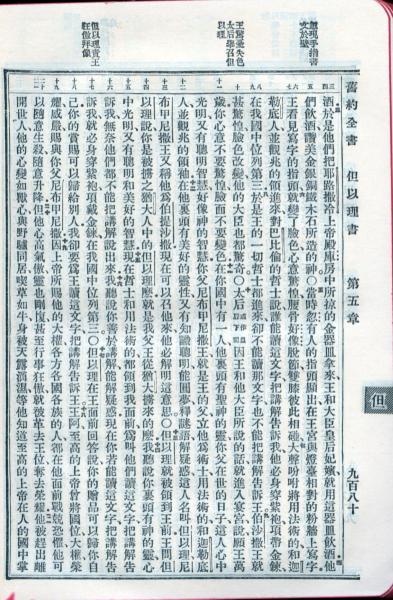 舊約全書 但以理書 第五章 九百八十
但
顯現手指書
文於壁
王驚失色
太后舉召但
以理
但以理責王
狂傲拜像
酒於是他們把耶路撒冷上帝殿庫房中所掠的金器皿拿來王和大臣皇后妃嬪就用這器皿飲酒他
們飲酒讚美金銀銅鐵木石所造的神○當時忽有人的指頭顯出在王宮與燈臺相對的粉牆上寫字
王看見寫字的指頭就變了臉色心意驚惶腰骨好像脫節雙膝彼此相磞大聲吩咐將用法術的和迦
勒底人並觀兆的領進來對巴比倫的哲士說誰能讀這文字把講解告訴我他必身穿紫袍項帶金鍊
在我國中位列第三於是王的一切哲士都進來卻不能讀那文字也不能把講解告訴王伯沙撒王就
甚驚惶臉色改變他的大臣也都驚奇○太后因王和大臣所說的話就進入宴宮說願王萬
歲你心意不要驚惶臉面不要變色在你國中有一人他裏頭有聖神的靈你父在世的日子這人心中
光明又有聰明智慧好像神的智慧你父尼布甲尼撒王就是王的父立他為術士用法術的和迦勒底
人並觀兆的領袖在他裏頭有美好的靈性又有知識聰明能圓夢釋謎語解疑惑這人名叫但以理尼
布甲尼撒王又稱他為伯提沙撒現在可以召他來他必解明這意思○但以理就被領到王前王問但
以理說你是被擄之猶大人中的但以理麼就是我父王從猶大擄來的麼我聽說你裏頭有神的靈心
中光明又有聰明和美好的智慧現在哲士和用法術的都領到我面前為叫他們讀這文字把講解告
訴我無奈他們都不能把講解說出來我聽說你善於講解能解疑惑現在你若能讀這文字把講解告
訴我就必身穿紫袍項戴金鍊在我國中位列第三○但以理在王面前回答說你的贈品可以歸你自
己你的賞賜可以歸給別人我卻要為王讀這文字把講解告訴王王阿至高的上帝曾將國位大權榮
耀威嚴賜與你父尼布甲尼撒因上帝所賜他的大權各方各國各族的人都在他面前戰兢恐懼他可
以隨意生殺隨意升降但他心高氣傲靈也剛愎甚至行事狂傲就被革去王位奪去榮耀他被趕出離
開世人他的心變如獸心與野驢同居喫草如牛身被天露滴濕等他知道至高的上帝在人的國中掌